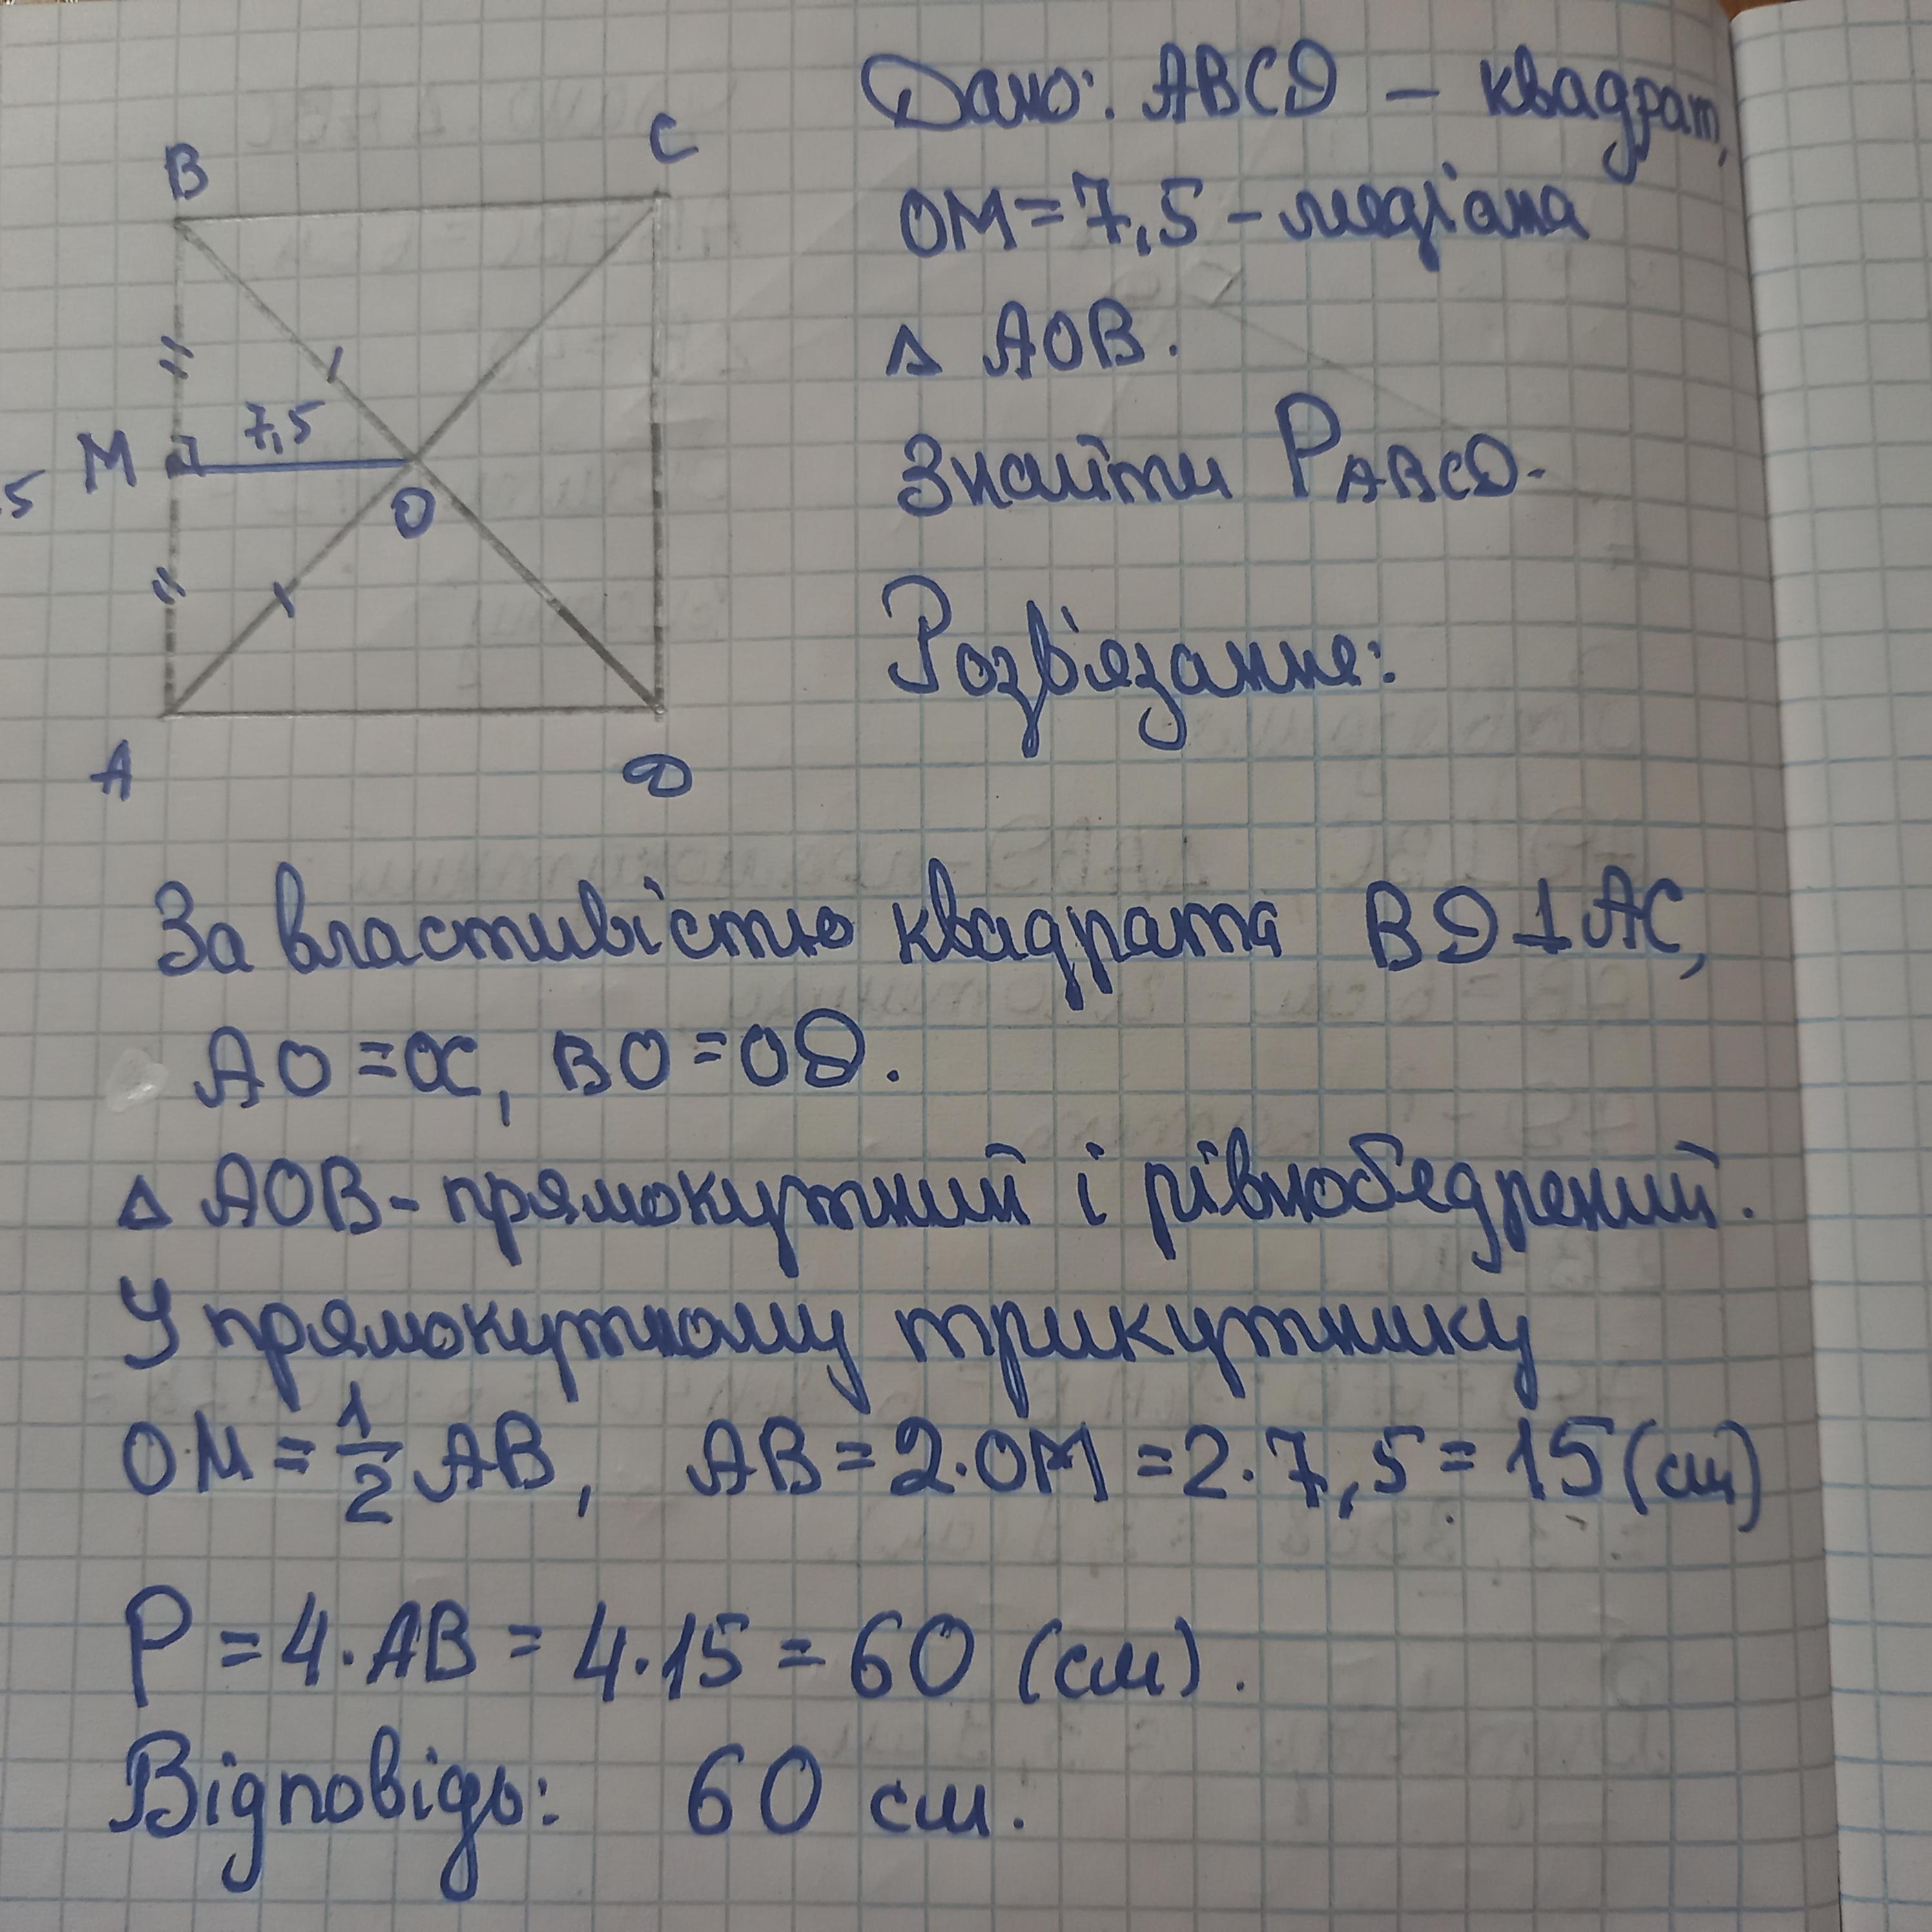 Дано: ABCD – квадрат,
OM=7,5 – медіана
△ AOB.
Знайти P ABCD.
Розв'язання:
B
C
M
7,5
O
5
A
D
За властивістю квадрата BD⊥AC,
AO=OC, BO=OD.
△ AOB – прямокутний і рівнобедрений.
У прямокутному трикутнику
OM = 1/2 AB, AB = 2·OM = 2·7,5 = 15 (см)
P = 4·AB = 4·15 = 60 (см).
Відповідь: 60 см.